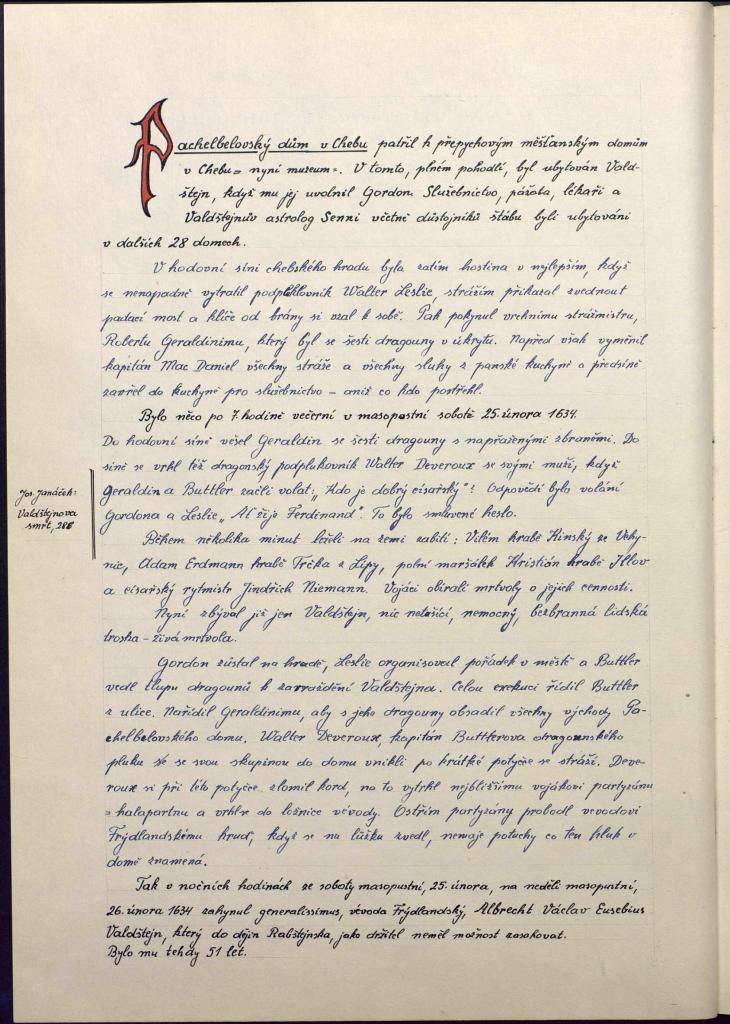 Pachelbelovský dům v Chebu patřil k přepychovým měšťanským domům
v Chebu = nyní museum =. V tomto, plném pohodlí, byl ubytován Vald-
štejn, když mu jej uvolnil Gordon. Služebnictvo, pážata, lékaři a
Valdštejnův astrolog Senni včetně důstojníků štábu byli ubytováni
v dalších 28 domech.
V hodovní síni chebského hradu byla zatím hostina v nejlepším, když
se nenapadně vytratil podplukovník Walter Leslie, strážím přikázal zvednout
padací most a klíče od brány si vzal k sobě. Pak pokynul vrchnímu strážmistru,
Robertu Geraldinimu, který byl se šesti dragouny v úkrytu. Napřed však vyměnil
kapitán Mac Daniel všechny stráže a všechny sluhy z panské kuchyně a předsíně
zavřel do kuchyně pro služebnictvo – aniž co kdo postřehl.
Bylo něco po 7. hodině večerní v masopustní sobotě 25. února 1634.
Do hodovní síně vešel Geraldin se šesti dragouny s napřaženými zbraněmi. Do
síně se vrhl též dragonský podplukovník Walter Deveroux se svými muži, když
Geraldin a Buttler začli volat: „Kdo je dobrý císařský"? Odpovědí bylo volání
Gordona a Leslie „Ať žije Ferdinand". To bylo smluvené heslo.
Jos. Janáček:
Valdštejnova
smrt, 286
Během několika minut leželi na zemi zabiti: Vilém hrabě Kinský ze Vchy-
nic, Adam Erdmann hrabě Trčka z Lípy, polní maršálek Kristián hrabě Illov
a císařský rytmistr Jindřich Niemann. Vojáci obírali mrtvoly o jejich cennosti.
Nyní zbýval již jen Valdštejn, nic netušící, nemocný, bezbranná lidská
troska – živá mrtvola.
Gordon zůstal na hradě, Leslie organisoval pořádek v městě a Buttler
vedl tlupu dragounů k zavraždění Valdštejna. Celou exekuci řídil Buttler
z ulice. Nařídil Geraldinimu, aby s jeho dragouny obsadil všechny východy Pa-
chelbelovského domu. Walter Deveroux, kapitán Buttlerova dragounského
pluku se se svou skupinou do domu vnikli po krátké potyčce se stráží. Deve-
roux si při této potyčce zlomil kord, na to vytrhl nejbližšímu vojákovi partyzánu
= halapartnu a vrhl se do ložnice vévody. Ostřím partyzány probodl vévodovi
Frýdlandskému hruď, když se na lůžku zvedl, nemaje potuchy co ten hluk v
domě znamená.
Tak v nočních hodinách ze soboty masopustní, 25. února, na neděli masopustní,
26. února 1634 zahynul generalissimus, vévoda Frýdlandský, Albrecht Václav Eusebius
Valdštejn, který do dějin Rabštejnska, jako držitel neměl možnost zasahovat.
Bylo mu tehdy 51 let.